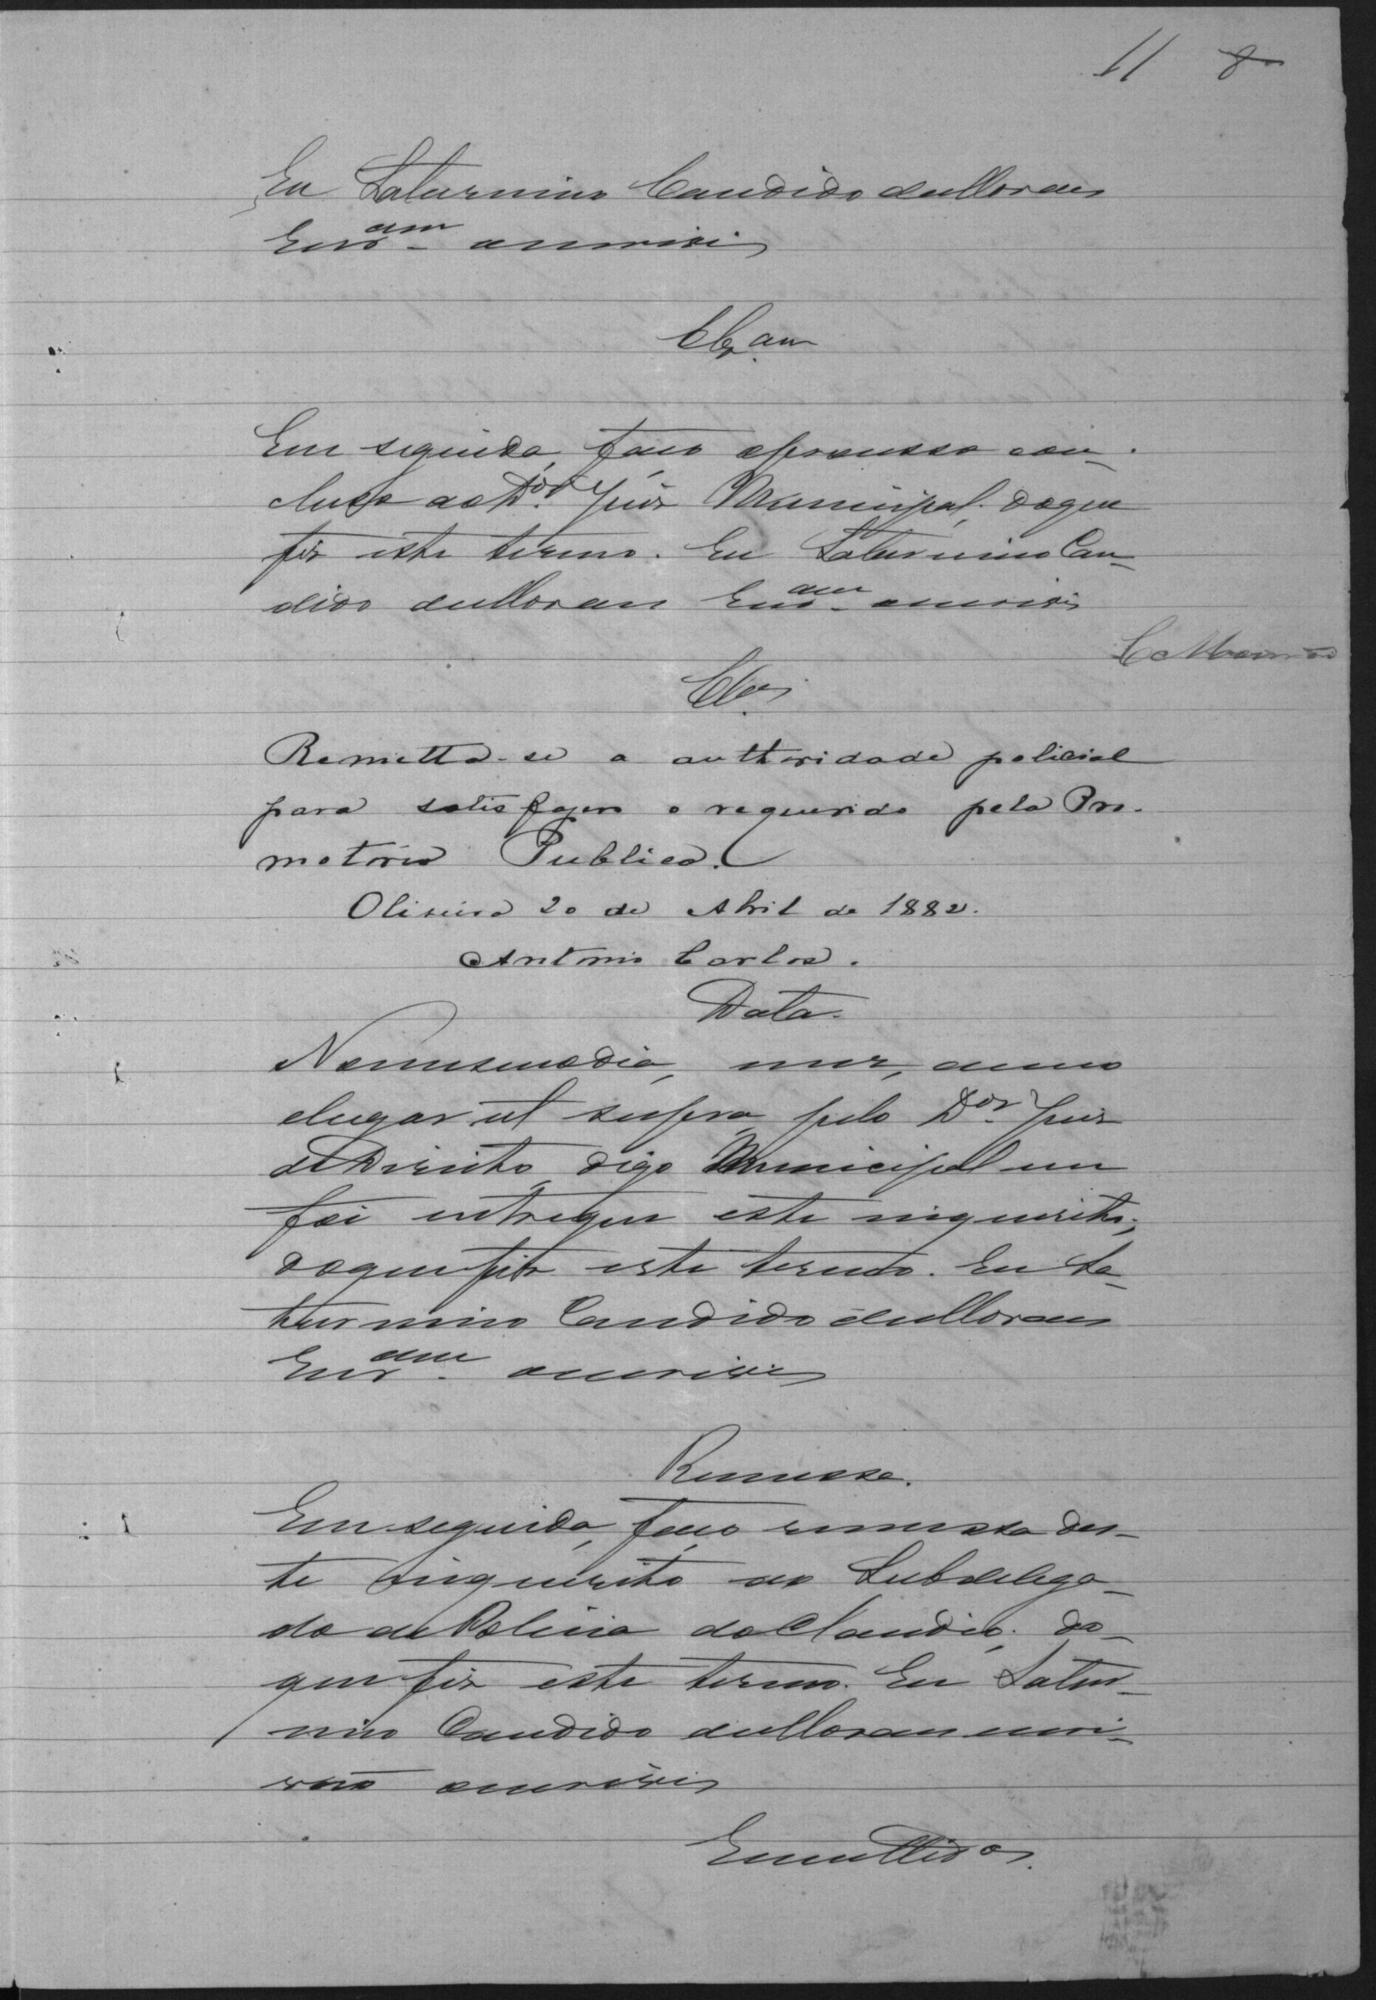 11 8
Eu Saturnino Candido de Moraes
Escr.am escrevi
Cls.am
Em seguida, faço o processo con-
cluso ao D.or Juiz Municipal; do que
fiz este termo. Eu Saturnino Can-
dido de Moraes Escr.am escrevi
C. Moraes
Cls.
Remetta-se a authoridade policial
para satisfazer o requerido pela Pro-
motoria Publica.
Oliveira 20 de Abril de 1882.
Antonio Carlos.
Data.
No mesmo dia, mez, anno
e lugar ut supra, pelo D.or Juiz
de Direito, digo Municipal me
foi entregue este inquerito;
do que fiz este termo. Eu Sa-
turnino Candido de Moraes
Escr.am escrevi
Remessa.
Em seguida, faço remessa des-
te inquerito ao Subdelega-
do de Policia do Claudio; do
que fiz este termo. Eu Satur-
nino Candido de Moraes escri-
vão escrevi